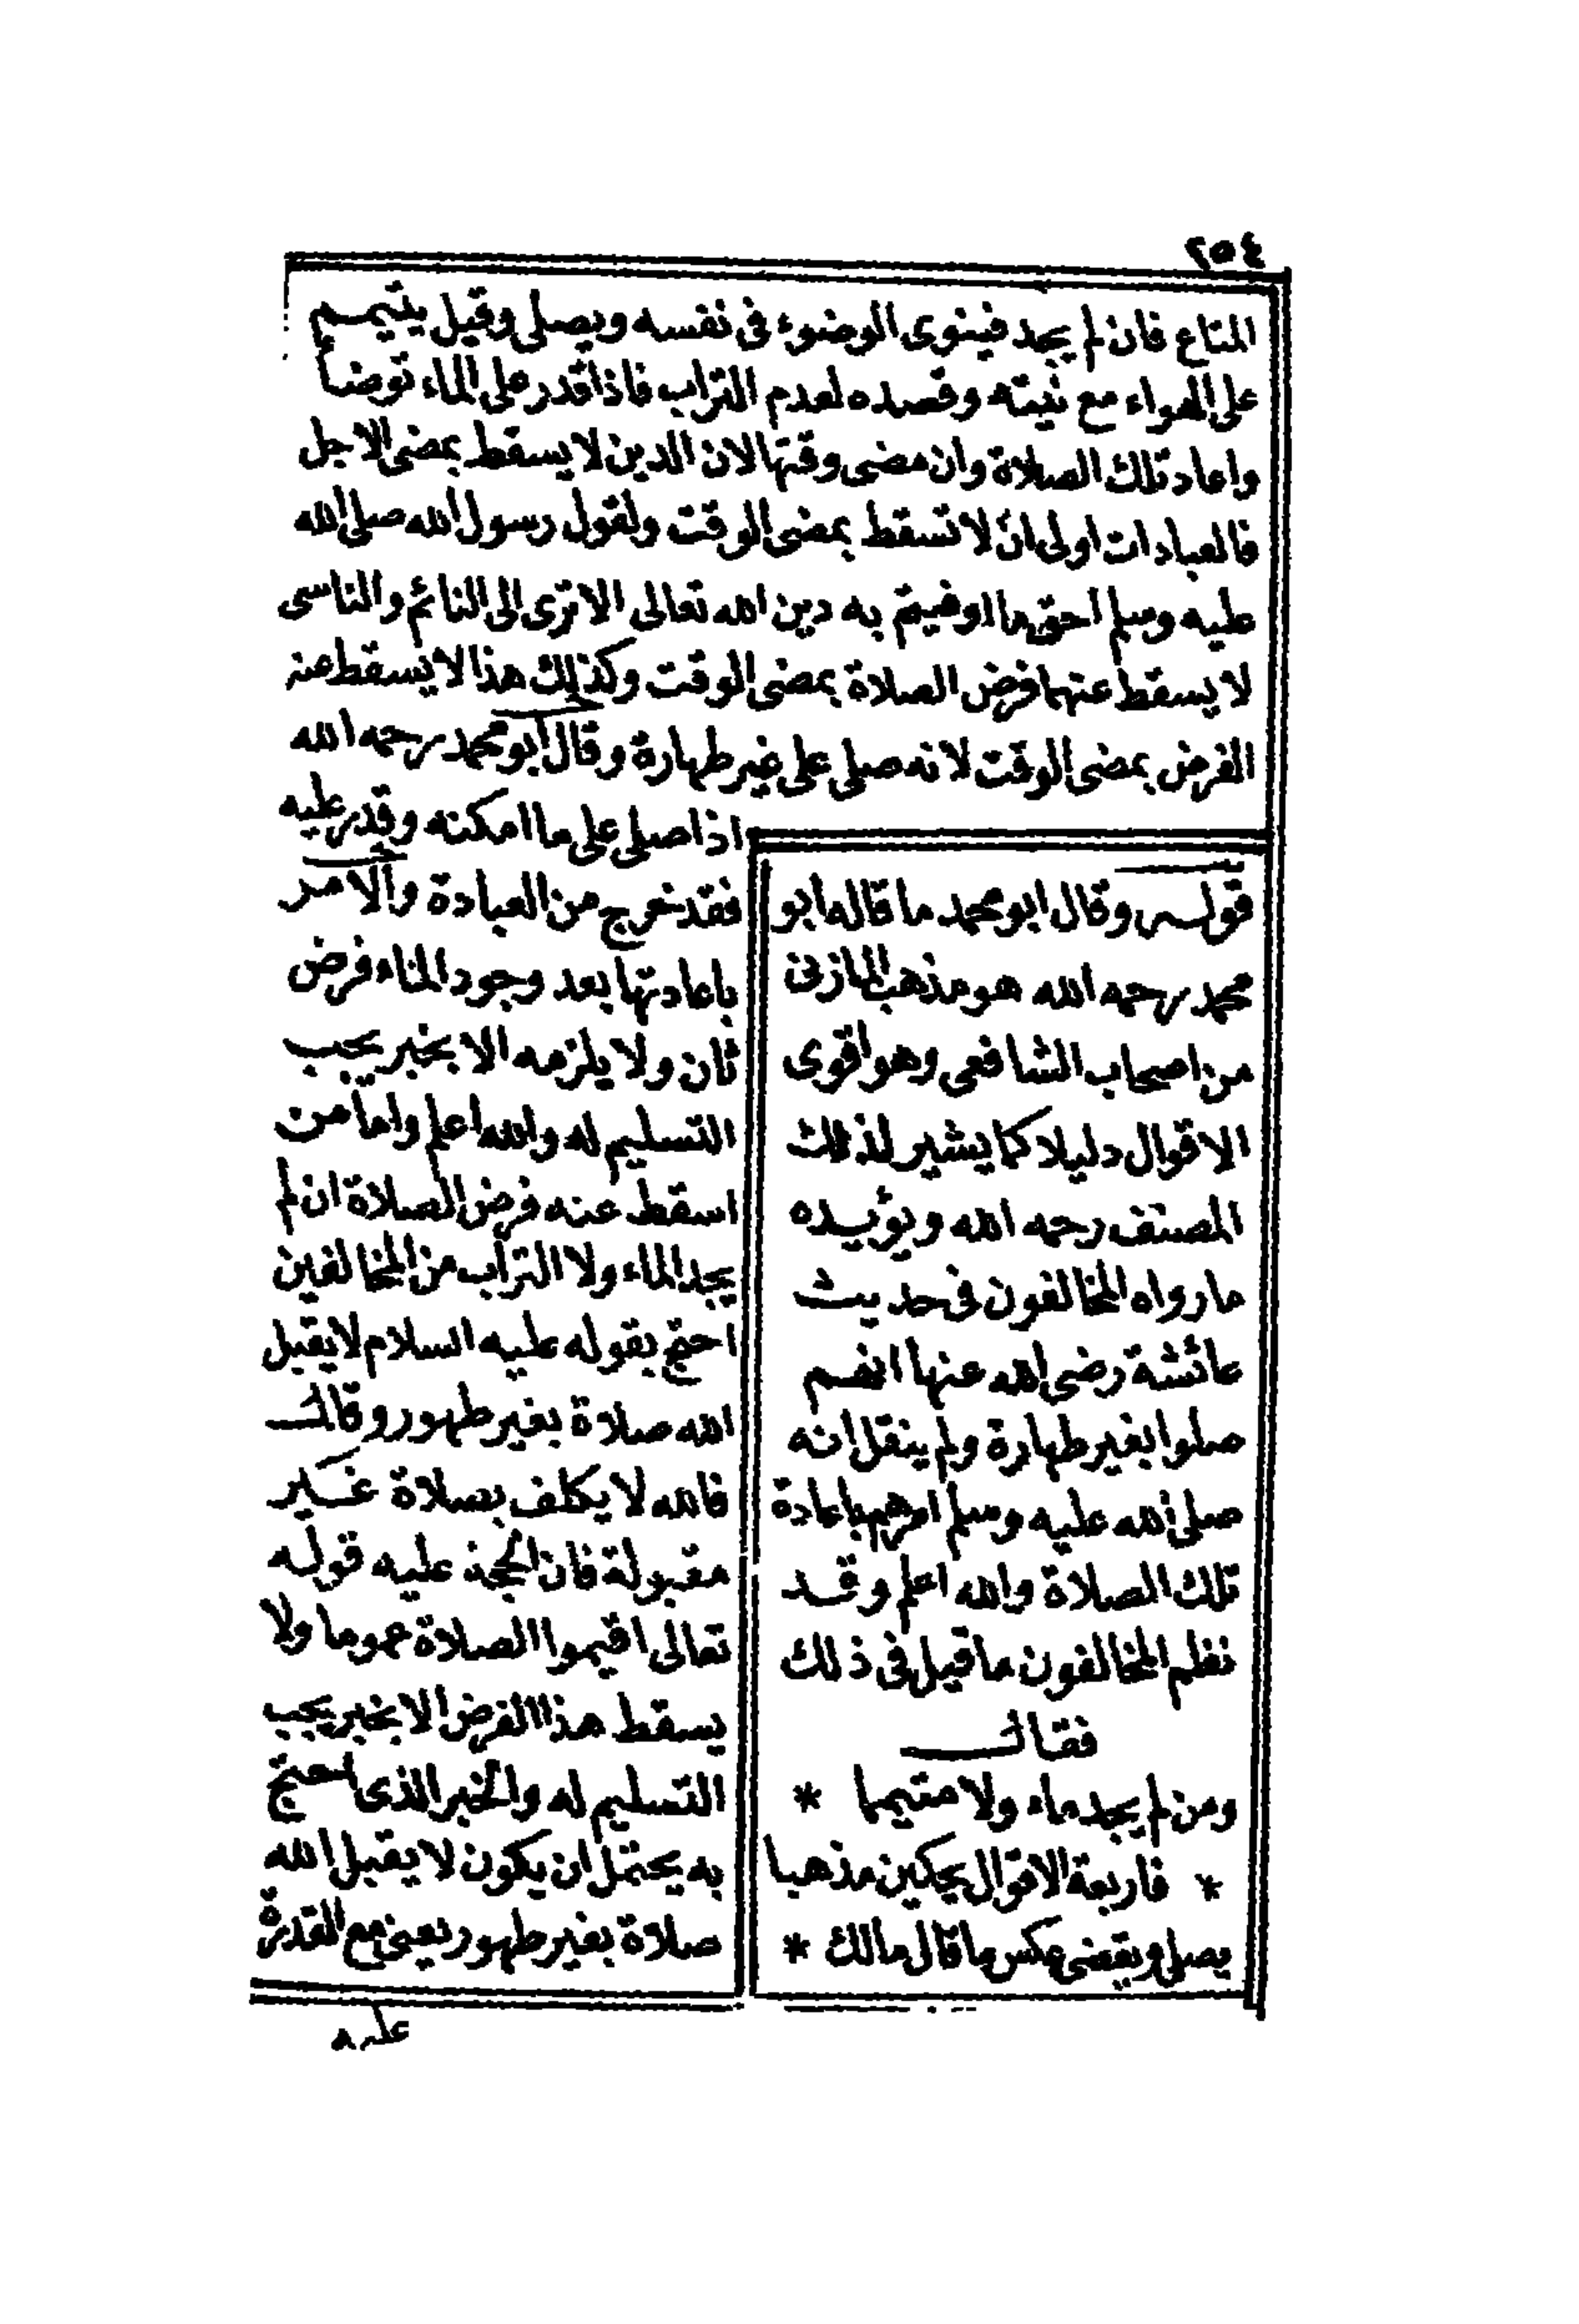 ٢٥٤
المتاع فان لم يجد فينوى الوضوء فى نفسه ويصلى وقيل يتيمم
على الهواء مع نيته وقصده لعدم التراب فاذا قدر على الماء توضأ
واعاد تلك الصلاة وان مضى وقتها لان الدين لا يسقط بمضى الاجل
فالعبادات اولى ان لا تسقط بمضى الوقت ولقول رسول الله صلى الله
عليه وسلم احق ما اوفيتم به دين الله تعالى الا ترى الى النائم والناسى
لا يسقط عنهما فرض الصلاة بمضى الوقت وكذلك هذا لا يسقط عنه
الفرض بمضى الوقت لانه صلى على غير طهارة وقال ابو محمد رحمه الله
اذا صلى على ما امكنه وقدر عليه
فقد خرج من العبادة والامر
باعادتها بعد وجود الماء فرض
ثان ولا يلزمه الا بخبر يجب
التسليم له والله اعلم واما من
اسقط عنه فرض الصلاة ان لم
يجد الماء ولا التراب من المخالفين
احتج بقوله عليه السلام لا يقبل
الله صلاة بغير طهور وقال
فالله لا يكلف بصلاة غير
مقبولة فان الحجة عليه قوله
تعالى اقيموا الصلاة عموما ولا
يسقط هذا الفرض الا بخبر يجب
التسليم له والخبر الذى احتج
به يحتمل ان يكون لا يقبل الله
صلاة بغير طهور يعنى مع القدرة
قوله وقال ابو محمد ما قاله ابو
محمد رحمه الله هو مذهب المازنى
من اصحاب الشافعى وهو اقوى
الاقوال دليلا كما يشير لذلك
المصنف رحمه الله ويؤيده
ما رواه المخالفون فى حديث
عائشة رضى الله عنها انهم
صلوا بغير طهارة ولم ينقل انه
صلى الله عليه وسلم امرهم باعادة
تلك الصلاة والله اعلم وقد
نظم المخالفون ما قيل فى ذلك
فقال
ومن لم يجد ماء ولا متيمما *
* فاربعة الاقوال يحكين مذهبا
يصلى ويقضى عكس ما قال مالك *
عليه